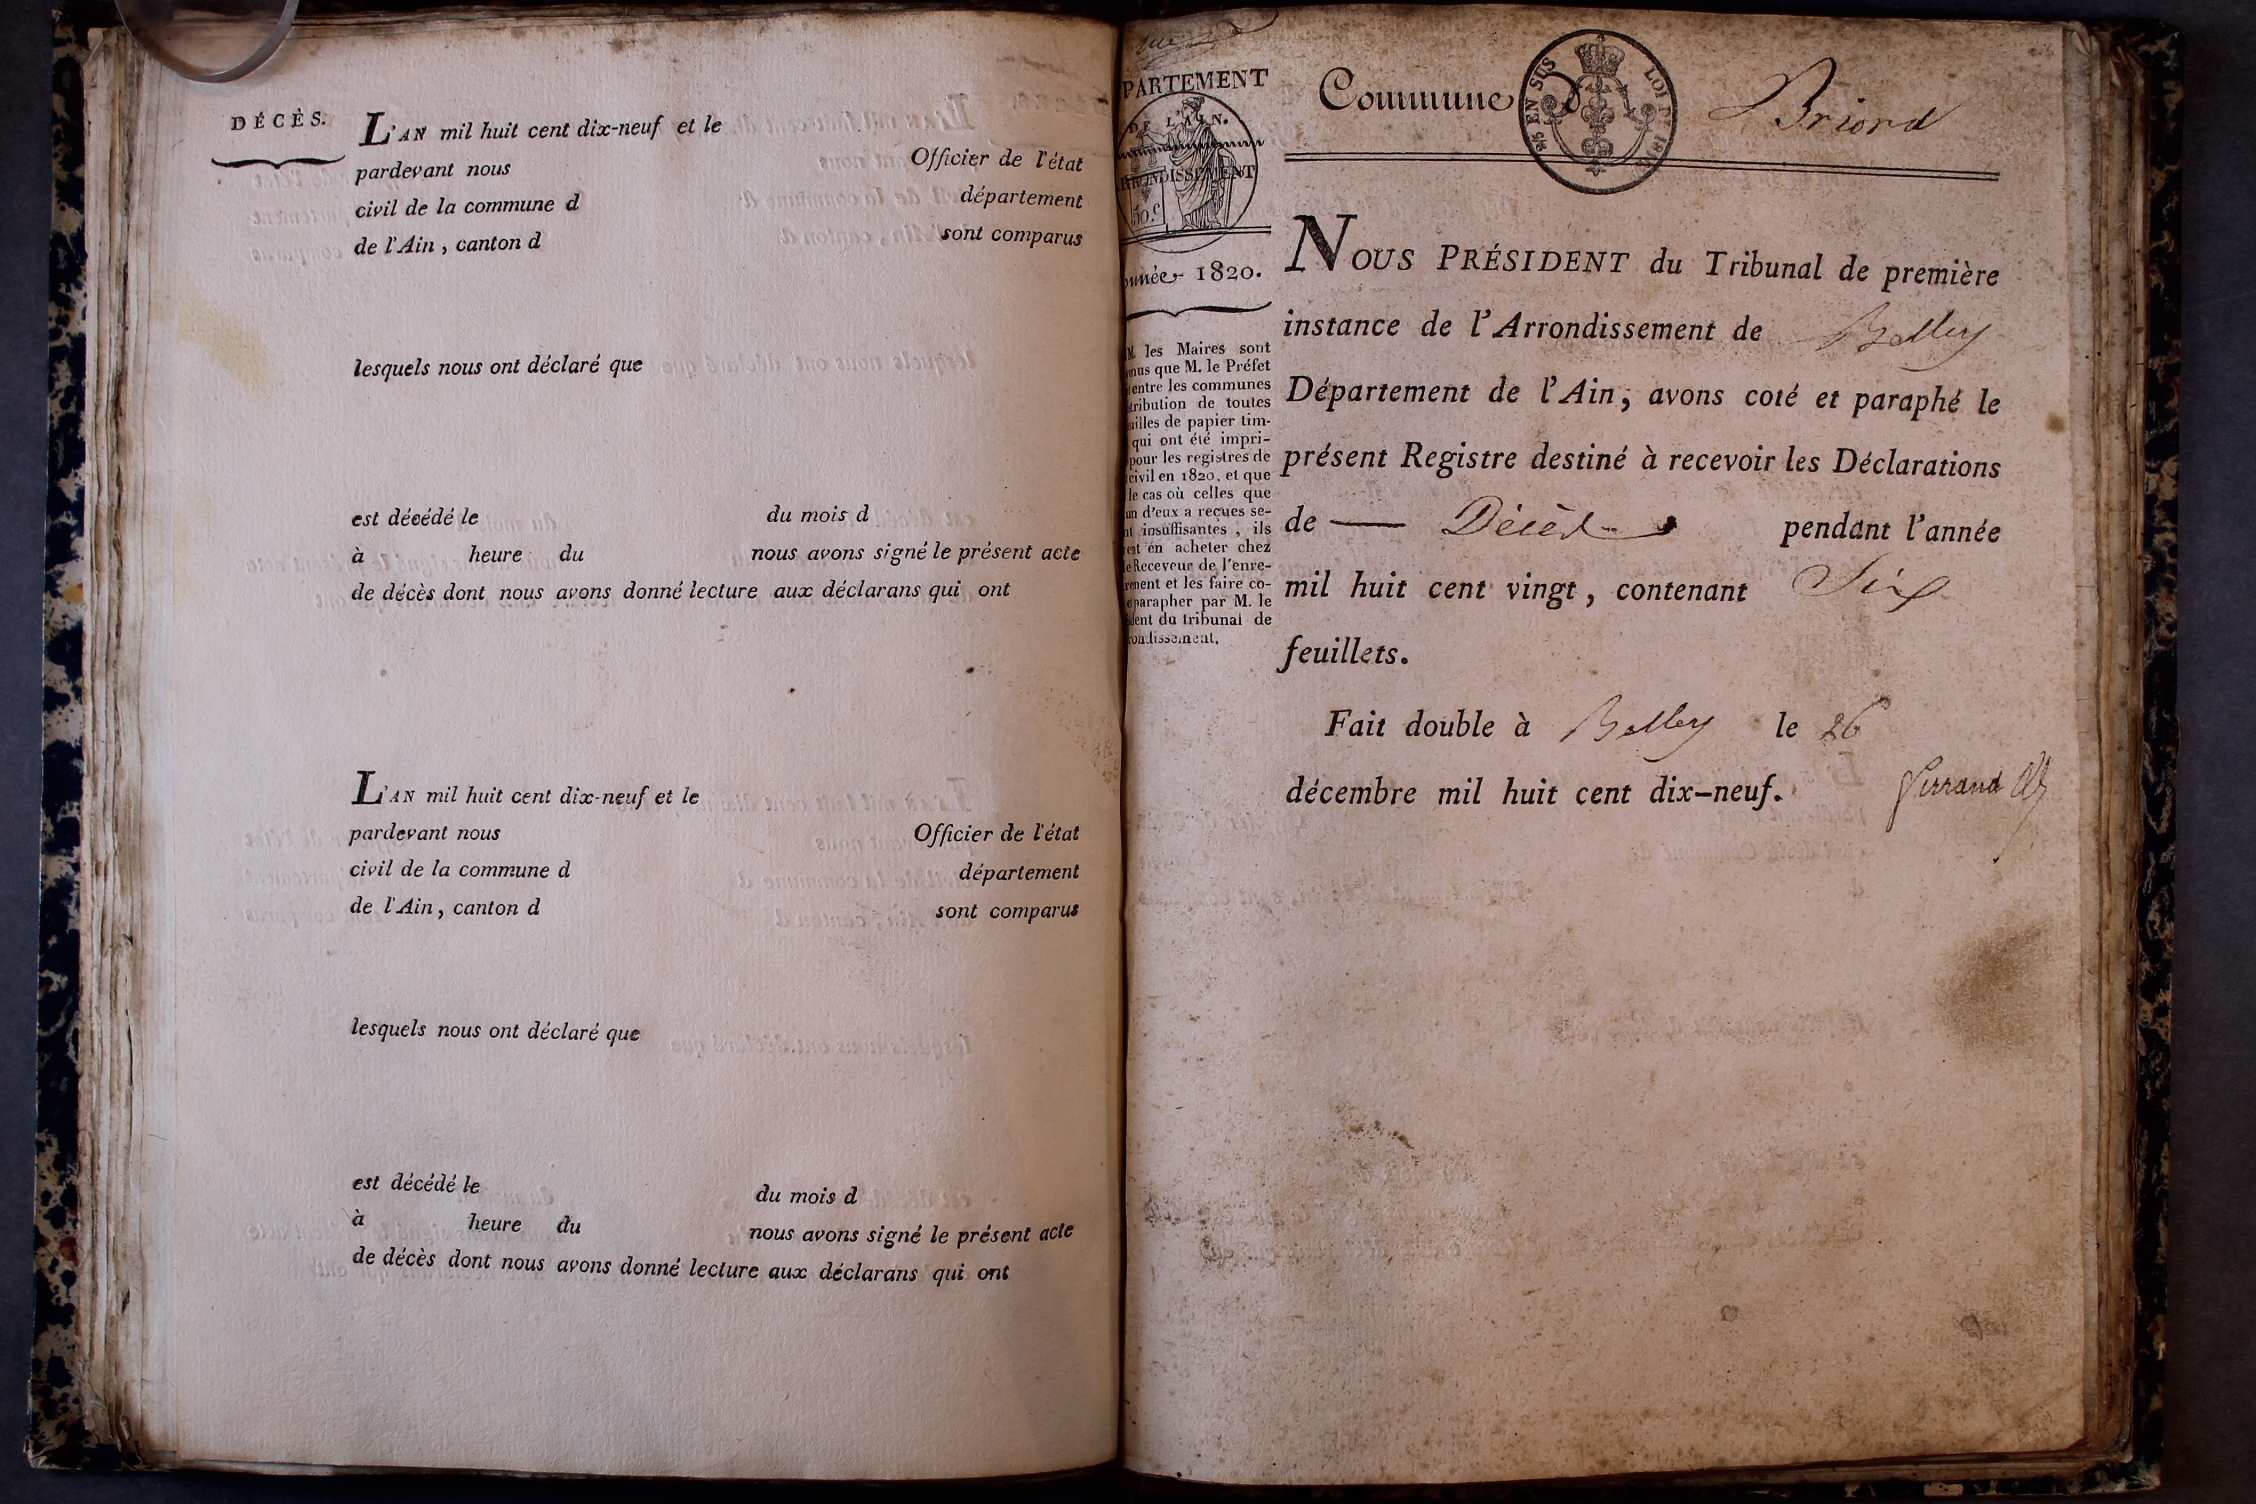 DÉCÈS.
L'AN mil huit cent dix-neuf et le
pardevant nous Officier de l'état
civil de la commune d département
de l'Ain, canton d sont comparus
lesquels nous ont déclaré que
est décédé le du mois d
à heure du nous avons signé le présent acte
de décès dont nous avons donné lecture aux déclarans qui ont
L'AN mil huit cent dix-neuf et le
pardevant nous Officier de l'état
civil de la commune d département
de l'Ain, canton d sont comparus
lesquels nous ont déclaré que
est décédé le du mois d
à heure du nous avons signé le présent acte
de décès dont nous avons donné lecture aux déclarans qui ont
PARTEMENT
DE L'AIN.
RRONDISSEMENT
50.c
nnée 1820.
M. les Maires sont
nus que M. le Préfet
entre les communes
tribution de toutes
uilles de papier tim-
qui ont été impri-
pour les registres de
civil en 1820, et que
le cas où celles que
un d'eux a reçues se-
nt insuffisantes, ils
ent en acheter chez
e Receveur de l'enre-
rement et les faire co-
parapher par M. le
dent du tribunal de
rondissement.
Commune d Briord
EN SUS LOI
NOUS PRÉSIDENT du Tribunal de première
instance de l'Arrondissement de Belley
Département de l'Ain, avons coté et paraphé le
présent Registre destiné à recevoir les Déclarations
de — Décès pendant l'année
mil huit cent vingt, contenant Six
feuillets.
Fait double à Belley le 26
décembre mil huit cent dix-neuf.